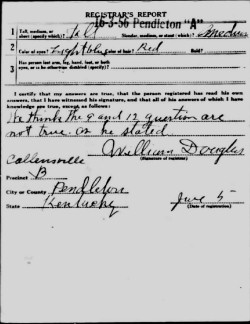 REGISTRAR'S REPORT
16-3-56 Pendleton "A"
1 Tall, medium, or short (specify which)? Tall Slender, medium, or stout (which)? Medium
2 Color of eyes? Light blue Color of hair? Red Bald?
3 Has person lost arm, leg, hand, foot, or both eyes, or is he otherwise disabled (specify)?
I certify that my answers are true, that the person registered has read his own answers, that I have witnessed his signature, and that all of his answers of which I have knowledge are true, except as follows:
He thinks the 9 and 12 question are
not true as he stated
William Douglas
(Signature of registrar)
Precinct B
City or County Pendleton
State Kentucky
June 5
(Date of registration)